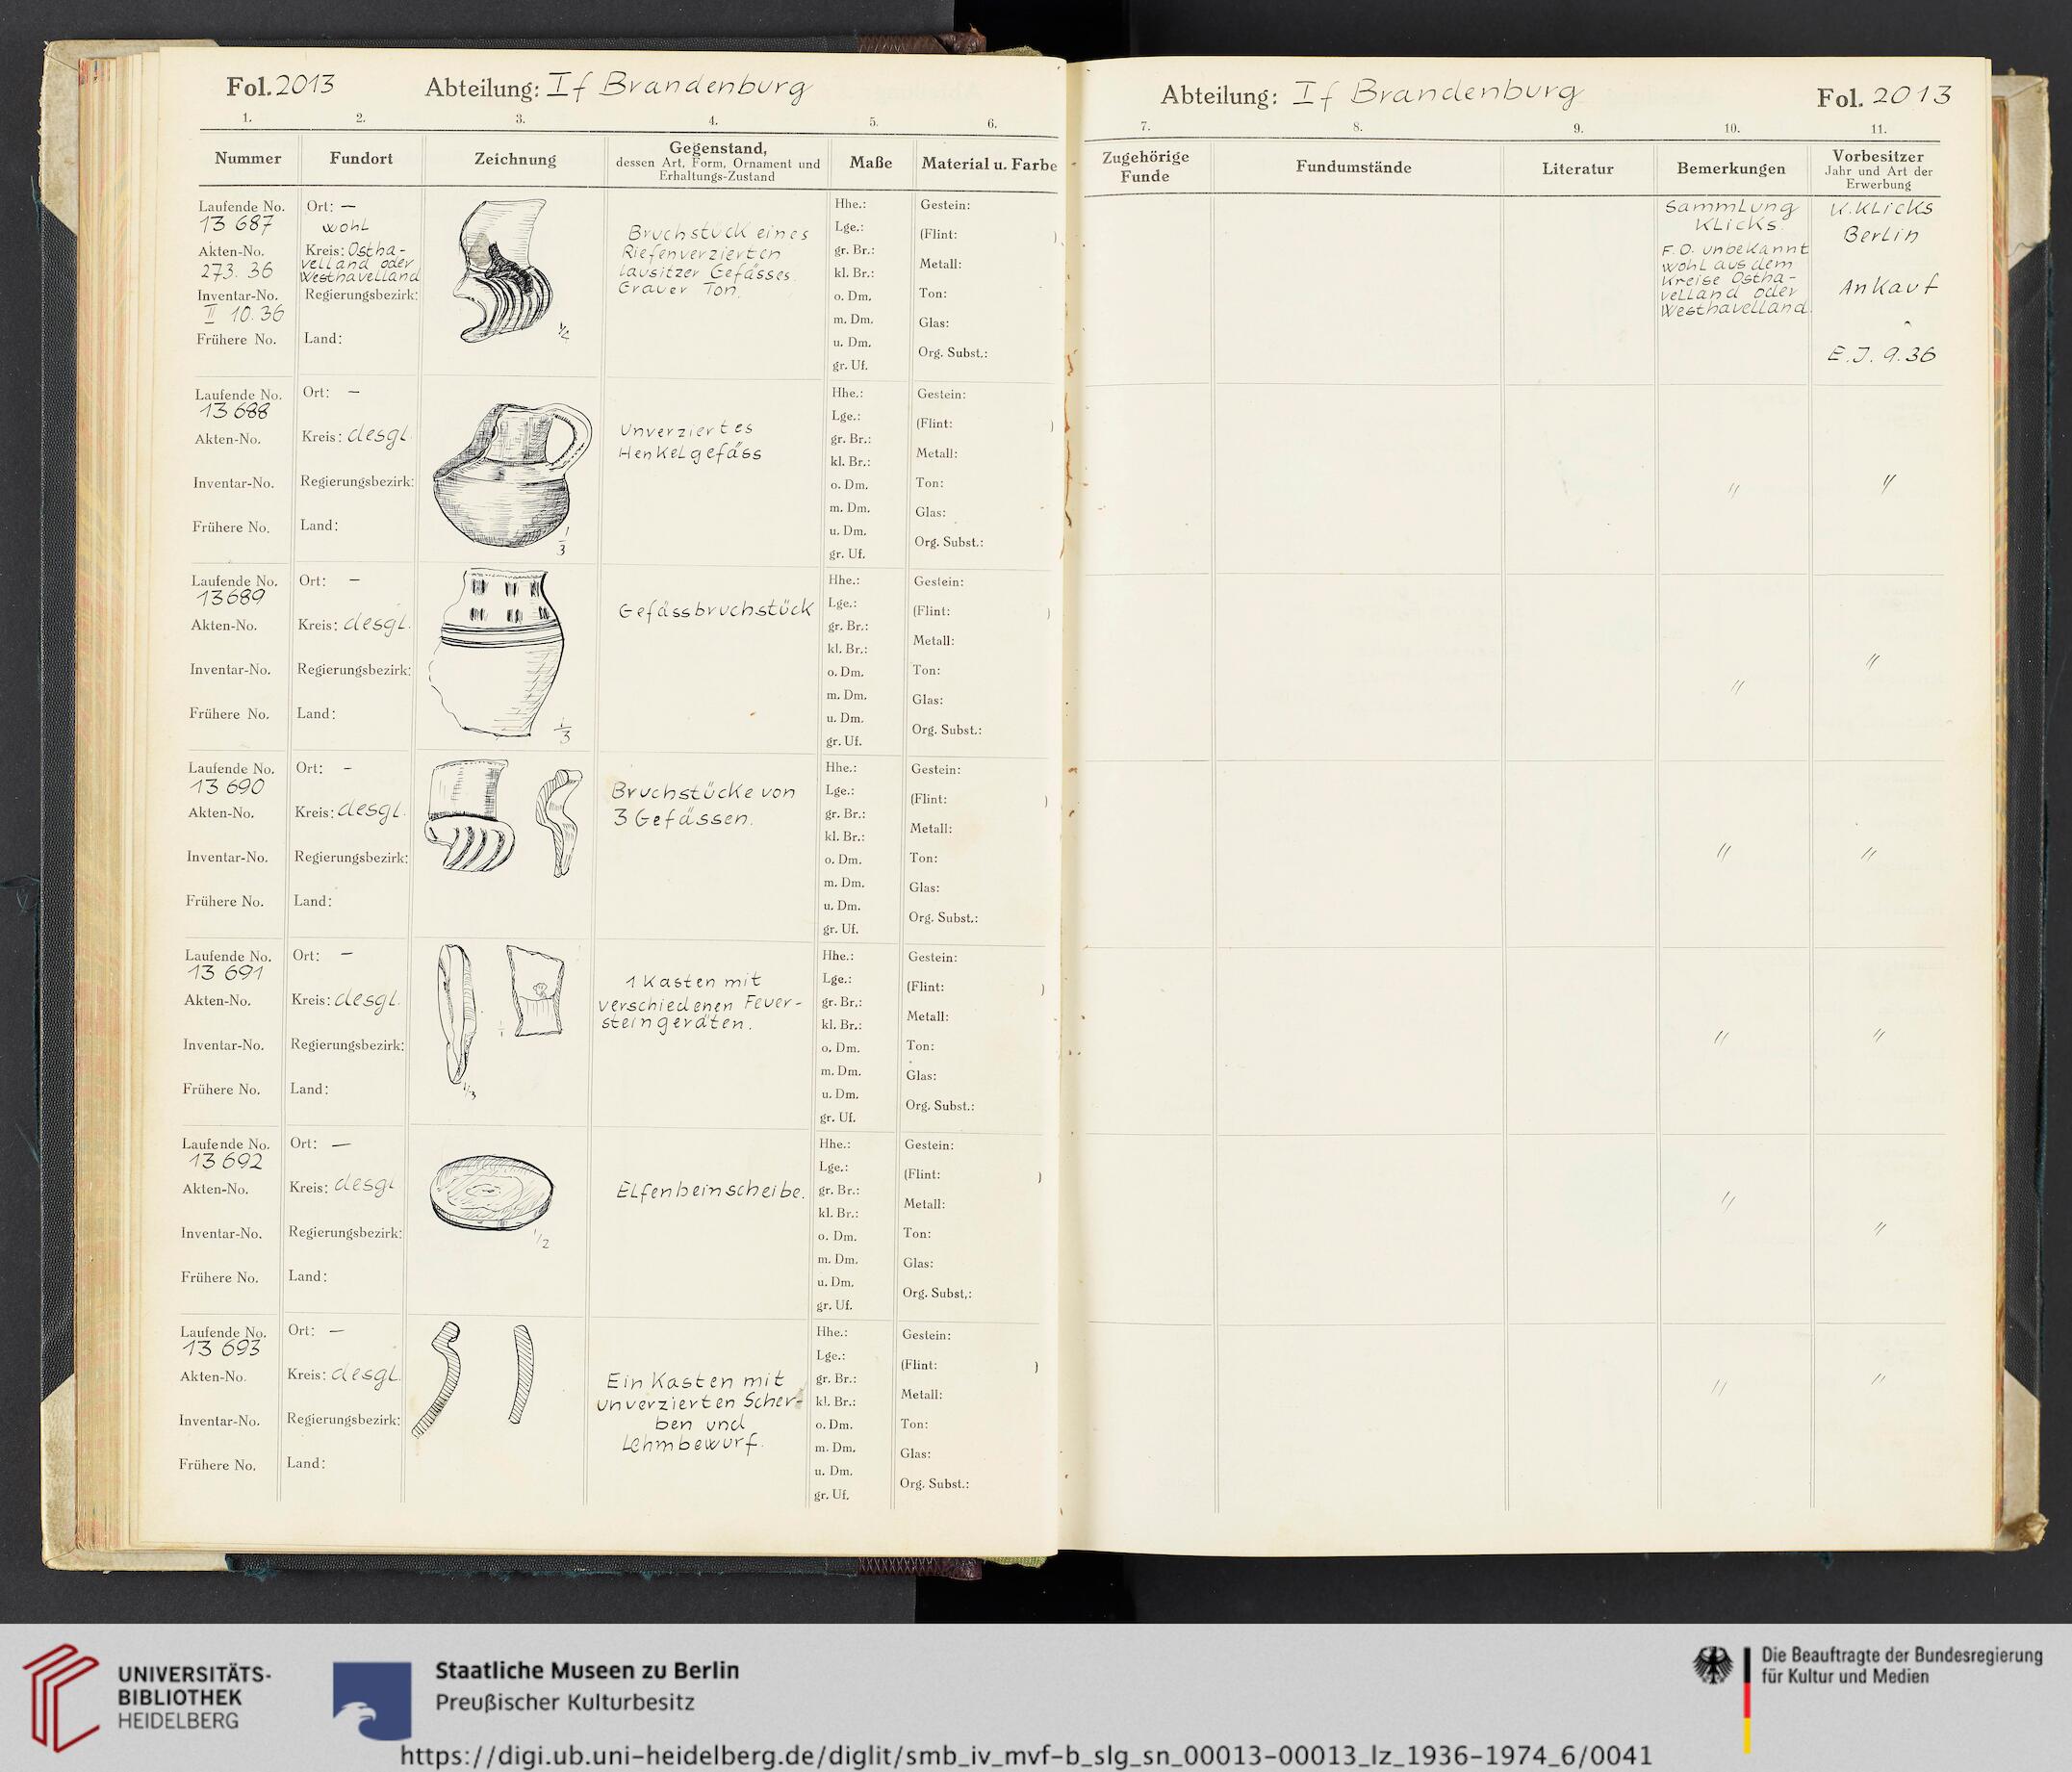 Fol. 2013 Abteilung: If Brandenburg
1. 2. 3. 4. 5. 6.
Nummer Fundort Zeichnung Gegenstand, dessen Art, Form, Ornament und Erhaltungs-Zustand Maße Material u. Farbe
Laufende No.
13 687
Akten-No.
273. 36
Inventar-No.
II 10.36
Frühere No.
Ort: —
wohl
Kreis: Ostha-
velland oder
Westhavelland
Regierungsbezirk:
Land:
1/2
Bruchstück eines
Riefenverzierten
lausitzer Gefässes.
Grauer Ton.
Hhe.:
Lge.:
gr. Br.:
kl. Br.:
o. Dm.
m. Dm.
u. Dm.
gr. Uf.
Gestein:
(Flint: )
Metall:
Ton:
Glas:
Org. Subst.:
Laufende No.
13 688
Akten-No.
Inventar-No.
Frühere No.
Ort: —
Kreis: desgl.
Regierungsbezirk:
Land:
1/3
Unverziertes
Henkelgefäss
Hhe.:
Lge.:
gr. Br.:
kl. Br.:
o. Dm.
m. Dm.
u. Dm.
gr. Uf.
Gestein:
(Flint: )
Metall:
Ton:
Glas:
Org. Subst.:
Laufende No.
13689
Akten-No.
Inventar-No.
Frühere No.
Ort: —
Kreis: desgl.
Regierungsbezirk:
Land:
1/3
Gefässbruchstück
Hhe.:
Lge.:
gr. Br.:
kl. Br.:
o. Dm.
m. Dm.
u. Dm.
gr. Uf.
Gestein:
(Flint: )
Metall:
Ton:
Glas:
Org. Subst.:
Laufende No.
13 690
Akten-No.
Inventar-No.
Frühere No.
Ort: —
Kreis: desgl.
Regierungsbezirk:
Land:
Bruchstücke von
3 Gefässen.
Hhe.:
Lge.:
gr. Br.:
kl. Br.:
o. Dm.
m. Dm.
u. Dm.
gr. Uf.
Gestein:
(Flint: )
Metall:
Ton:
Glas:
Org. Subst.:
Laufende No.
13 691
Akten-No.
Inventar-No.
Frühere No.
Ort: —
Kreis: desgl.
Regierungsbezirk:
Land:
1/3
1 Kasten mit
verschiedenen Feuer-
steingeräten.
Hhe.:
Lge.:
gr. Br.:
kl. Br.:
o. Dm.
m. Dm.
u. Dm.
gr. Uf.
Gestein:
(Flint: )
Metall:
Ton:
Glas:
Org. Subst.:
Laufende No.
13 692
Akten-No.
Inventar-No.
Frühere No.
Ort: —
Kreis: desgl
Regierungsbezirk:
Land:
1/2
Elfenbeinscheibe.
Hhe.:
Lge.:
gr. Br.:
kl. Br.:
o. Dm.
m. Dm.
u. Dm.
gr. Uf.
Gestein:
(Flint: )
Metall:
Ton:
Glas:
Org. Subst.:
Laufende No.
13 693
Akten-No.
Inventar-No.
Frühere No.
Ort: —
Kreis: desgl.
Regierungsbezirk:
Land:
Ein Kasten mit
unverzierten Scher-
ben und
Lehmbewurf.
Hhe.:
Lge.:
gr. Br.:
kl. Br.:
o. Dm.
m. Dm.
u. Dm.
gr. Uf.
Gestein:
(Flint: )
Metall:
Ton:
Glas:
Org. Subst.:
Abteilung: If Brandenburg Fol. 2013
7. 8. 9. 10. 11.
Zugehörige Funde Fundumstände Literatur Bemerkungen Vorbesitzer Jahr und Art der Erwerbung
Sammlung
Klicks.
F.O. unbekannt
wohl aus dem
Kreise Ostha-
velland oder
Westhavelland.
K. Klicks
Berlin
Ankauf
E.J. 9.36
" "
" "
" "
" "
" "
" "
UNIVERSITÄTS-
BIBLIOTHEK
HEIDELBERG
Staatliche Museen zu Berlin
Preußischer Kulturbesitz
Die Beauftragte der Bundesregierung
für Kultur und Medien
https://digi.ub.uni-heidelberg.de/diglit/smb_iv_mvf-b_slg_sn_00013-00013_lz_1936-1974_6/0041